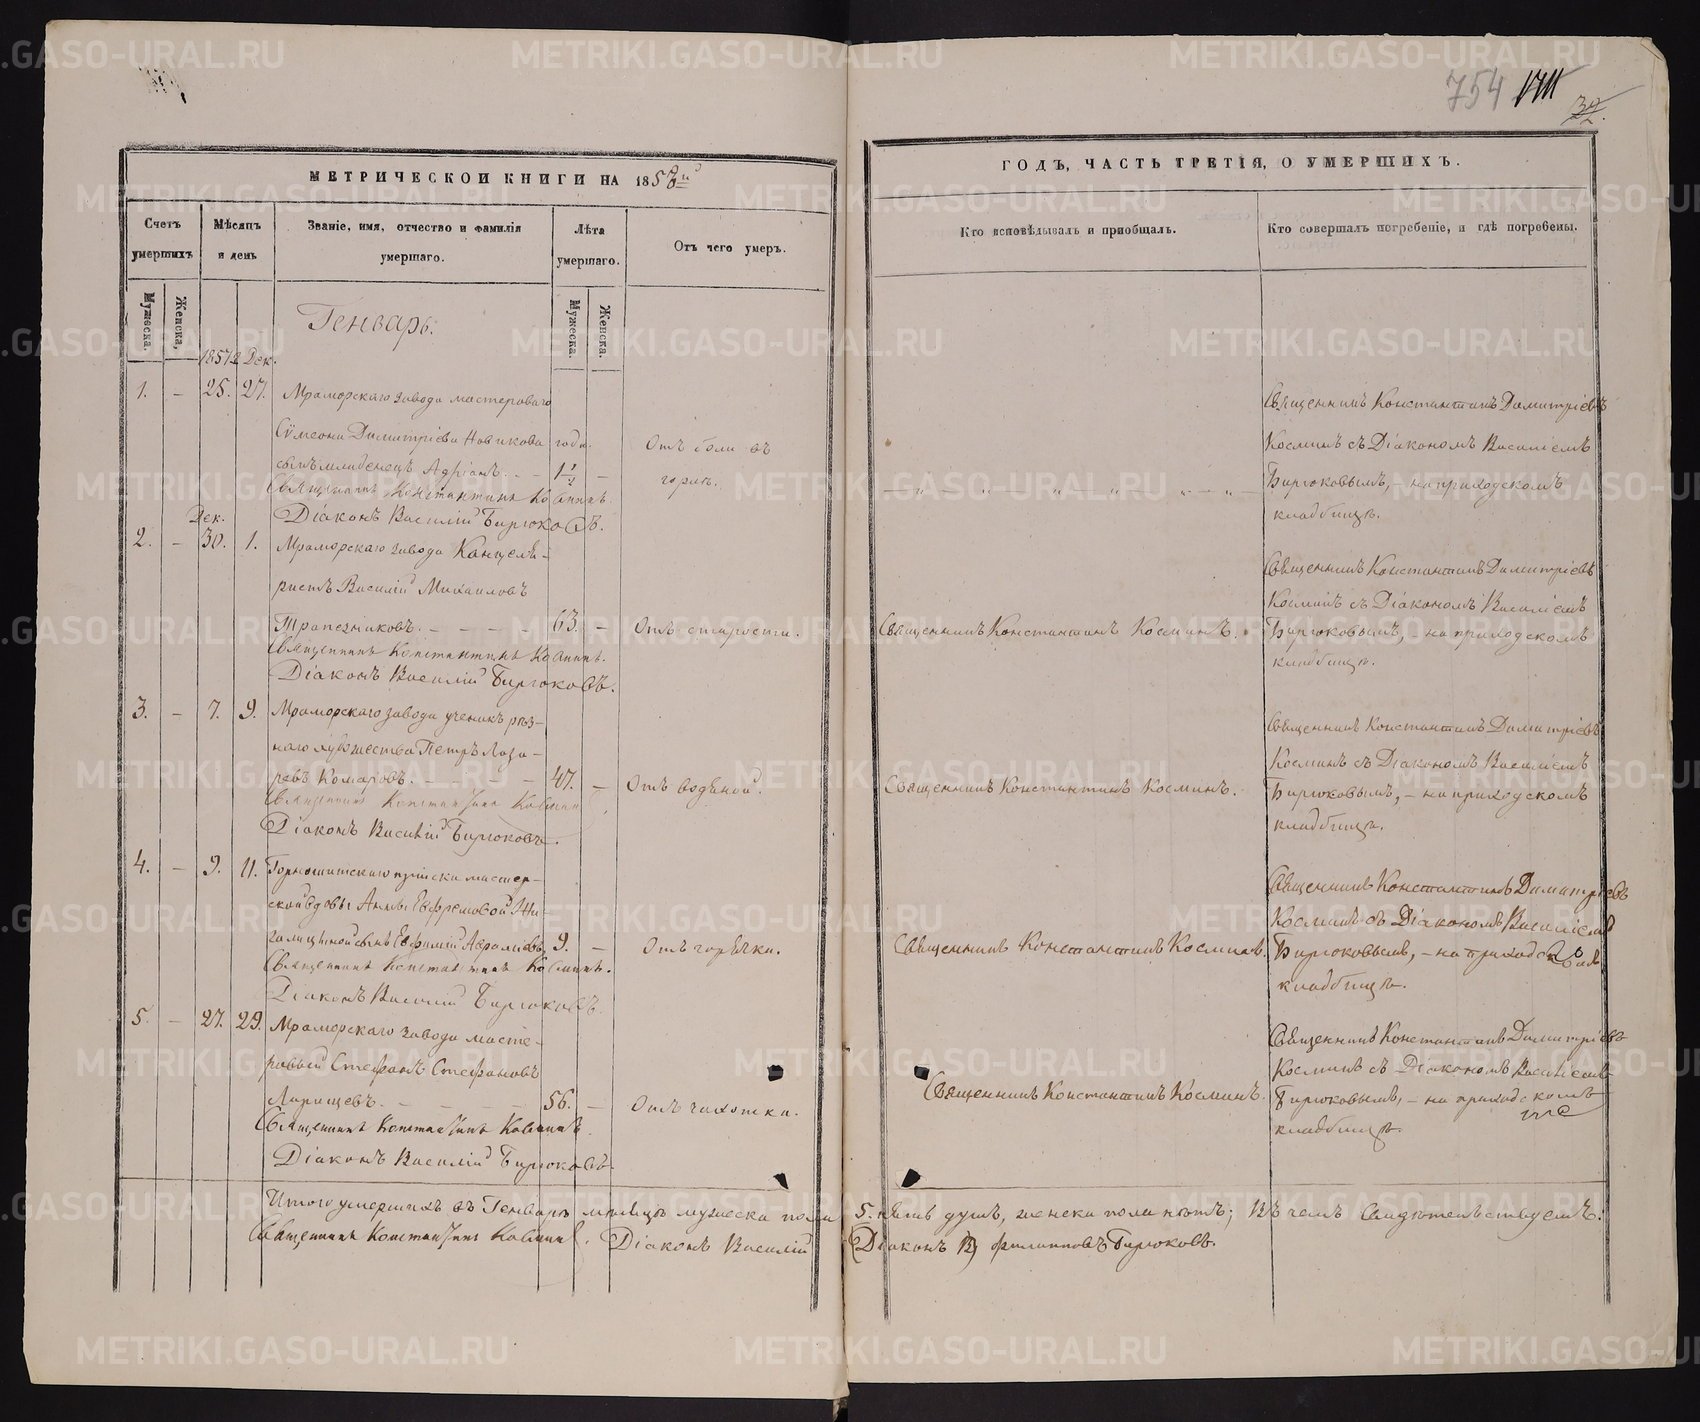 754
МЕТРИЧЕСКОИ КНИГИ НА 1858й
ГОДЪ, ЧАСТЬ ТРЕТІЯ, О УМЕРШИХЪ.
Счетъ умершихъ
Мѣсяцъ и день
Званіе, имя, отчество и фамилія умершаго.
Лѣта умершаго.
Отъ чего умеръ.
Кто исповѣдывалъ и пріобщалъ.
Кто совершалъ погребеніе, и гдѣ погребены.
Мужеска.
Женска.
Мужеска.
Женска.
Генварь.
1857 Дек.
1. – 25. 27. Мраморскаго завода мастероваго
Сѵмеона Димитріева Новикова года
сынъ младенецъ Адріанъ. – – 1 1/2 –
Отъ боли въ
горлѣ.
Священникъ Константинъ Димитріевъ
Косминъ съ Діакономъ Василіемъ
Бирюковымъ, – на приходскомъ
кладбищѣ.
Священникъ Константинъ Косминъ.
Діаконъ Василій Бирюковъ.
Дек.
2. – 30. 1. Мраморскаго завода Канцеля-
ристъ Василій Михаиловъ
Трапезниковъ. – – – – 63. –
Отъ старости.
Священникъ Константинъ Косминъ.
Священникъ Константинъ Димитріевъ
Косминъ съ Діакономъ Василіемъ
Бирюковымъ, – на приходскомъ
кладбищѣ.
Священникъ Константинъ Косминъ.
Діаконъ Василій Бирюковъ.
3. – 7. 9. Мраморскаго завода ученикъ рѣз-
наго художества Петръ Лаза-
ревъ Комаровъ. – – – – 47. –
Отъ водяной.
Священникъ Константинъ Косминъ.
Священникъ Константинъ Димитріевъ
Косминъ съ Діакономъ Василіемъ
Бирюковымъ, – на приходскомъ
кладбищѣ.
Священникъ Константинъ Косминъ
Діаконъ Василій Бирюковъ.
4. – 9. 11. Горнощитскаго пріиска мастер-
ской вдовы Анны Ефремовой
сынъ Евфимій Аврамовъ 9. –
Отъ горячки.
Священникъ Константинъ Косминъ.
Священникъ Константинъ Димитріевъ
Косминъ съ Діакономъ Василіемъ
Бирюковымъ, – на приходскомъ
кладбищѣ.
Священникъ Константинъ Косминъ.
Діаконъ Василій Бирюковъ.
5. – 27. 29. Мраморскаго завода масте-
ровый Стефанъ Стефановъ
Ларищевъ. – – – – 56. –
Отъ чахотки.
Священникъ Константинъ Косминъ.
Священникъ Константинъ Димитріевъ
Косминъ съ Діакономъ Василіемъ
Бирюковымъ, – на приходскомъ
кладбищѣ.
Священникъ Константинъ Косминъ.
Діаконъ Василій Бирюковъ.
Итого умершихъ въ Генварѣ мѣсяцѣ мужеска пола 5. пять душъ, женска пола нѣтъ; Въ чемъ свидѣтельствуемъ:
Священникъ Константинъ Косминъ. Діаконъ Василій Филипповъ Бирюковъ.
METRIKI.GASO-URAL.RU